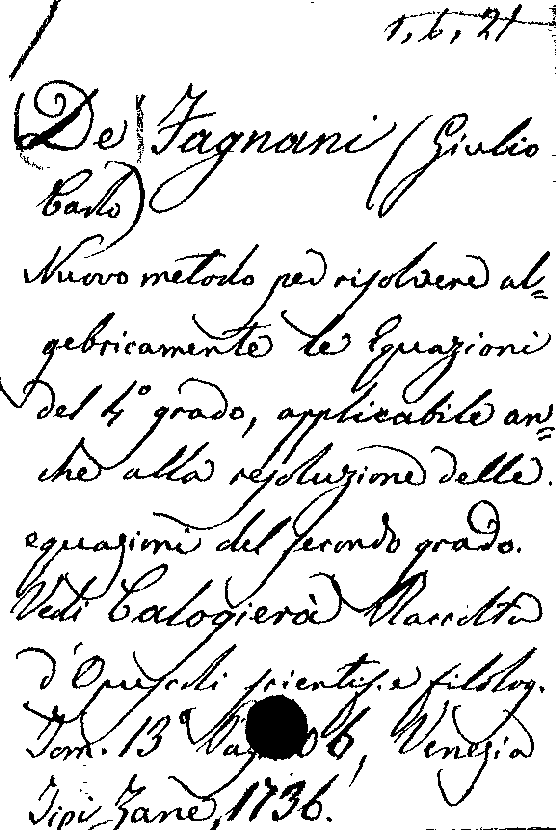 1, 6, 21
(De) Fagnani (Giulio
Carlo)
Nuovo metodo per risolvere al=
gebricamente le Equazioni
del 4º grado, applicabile an=
che alla resoluzione delle
equazioni del secondo grado.
Vedi Calogierà Raccolta
d'Opuscoli scientif. e filolog.
Tom. 13º 06, Venezia
Tipi Zane, 1736.